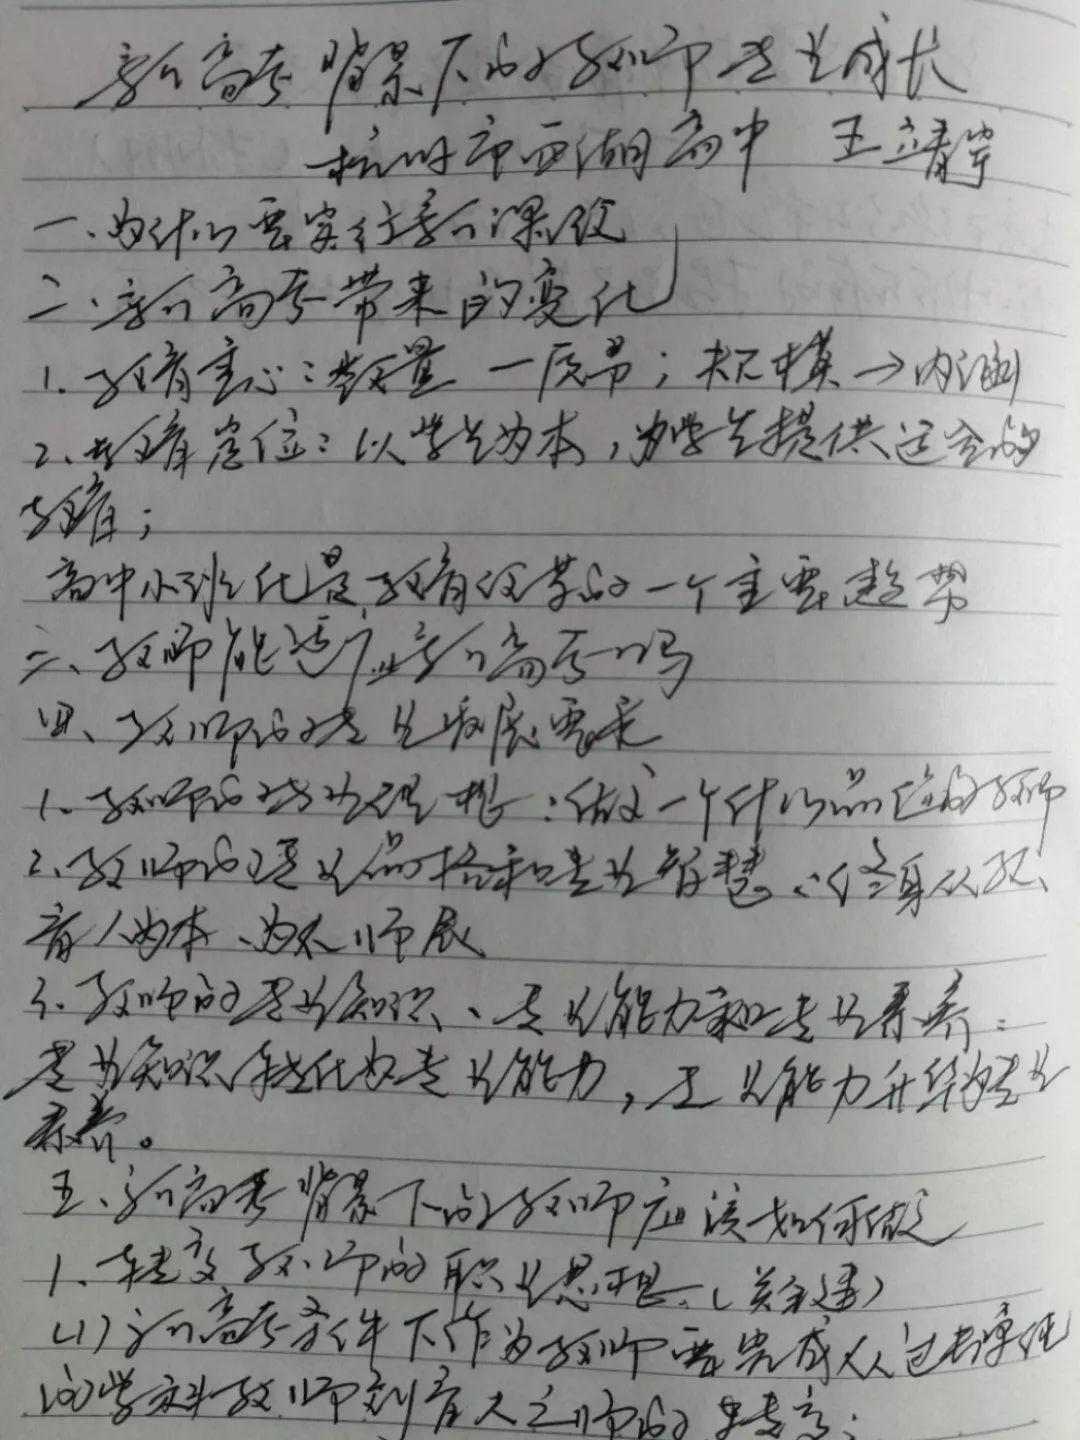 新高考背景下的教师专业成长
杭州市西湖高中 王立静
一、为什么要实行新课改
二、新高考带来的变化
1. 教育重心：数量—质量；规模→内涵
2. 教育定位：以学生为本，为学生提供适合的
教育；
高中小班化是教育改革的一个主要趋势
三、教师能适应新高考吗
四、教师的专业发展要求
1. 教师的专业理想：做一个什么品位的教师
2. 教师的专业品格和专业智慧：终身从教、
育人为本、为人师表
3. 教师的专业知识、专业能力和专业素养：
专业知识转化为专业能力，专业能力升华为专业
素养。
五、新高考背景下的教师应该如何做
1. 转变教师的职业思想（关键）
(1) 新高考条件下作为教师要完成从过去单纯
的学科教师到育人之师的转变；